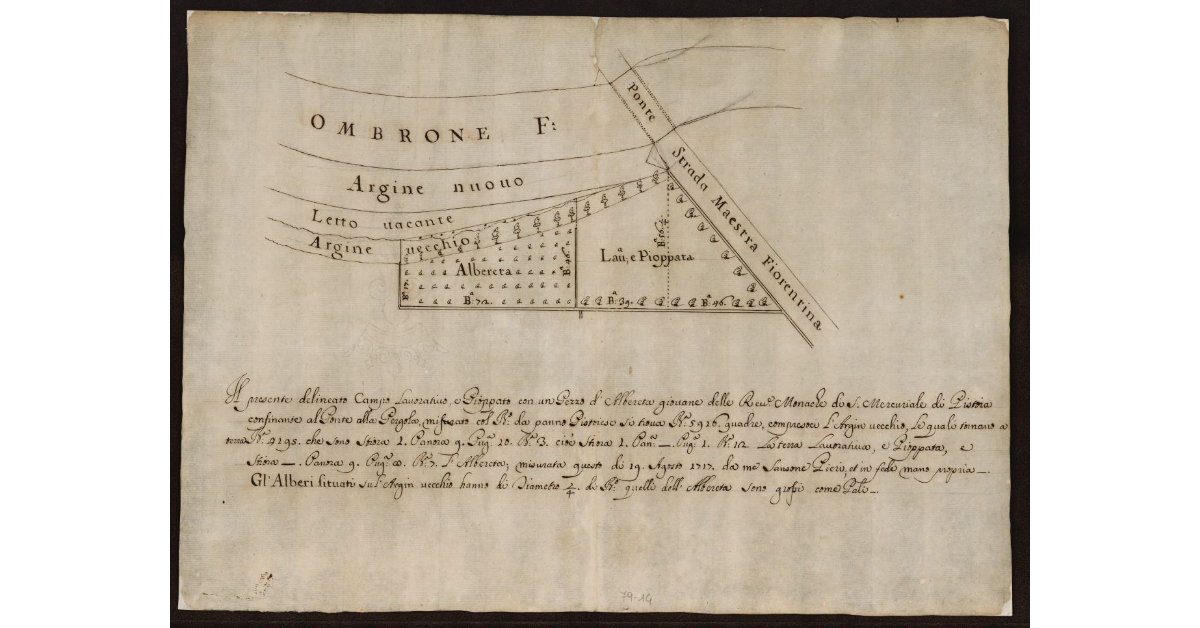 OMBRONE F:
Ponte
Argine nuouo
Strada Maestra Fiorentina
Letto uacante
Argine uecchio
Albereta
Lau:, e Pioppata
Ba: 17.
Ba: 46
Ba: 56
Ba: 72.
Ba: 39.
Ba: 46.
Il presente delineato Campo Lauoratiuo, e Pioppato con un Pezzo d' Albereta giouane delle Reue. Monache di S. Mercuriale di Pistoia
confinante al Ponte alla Pergola, misurato col Bo. da panno Pistoiese si troua Ba. 5916. quadre, compresoci l'Argin uecchio, le quali tornano a
terra Ba. 4195. che sono Stiora 2. Panora 9. Pug: 10. Ba. 3. cioè Stiora 2. Pan: —. Pug: 1. Ba. 12. La terra Lauoratiua, e Pioppata, e
Stiora —. Panora 9. Pug: 8. Ba. 7. l'Albereta; misurata questo dì 19. Agosto 1717. da me Sansone Pieri, et in fede mano propria —.
Gl'Alberi situati su l'Argin uecchio hanno di Diametro 1/4. di Bo. quelli dell'Albereta sono grossi come Pali —.
79-14